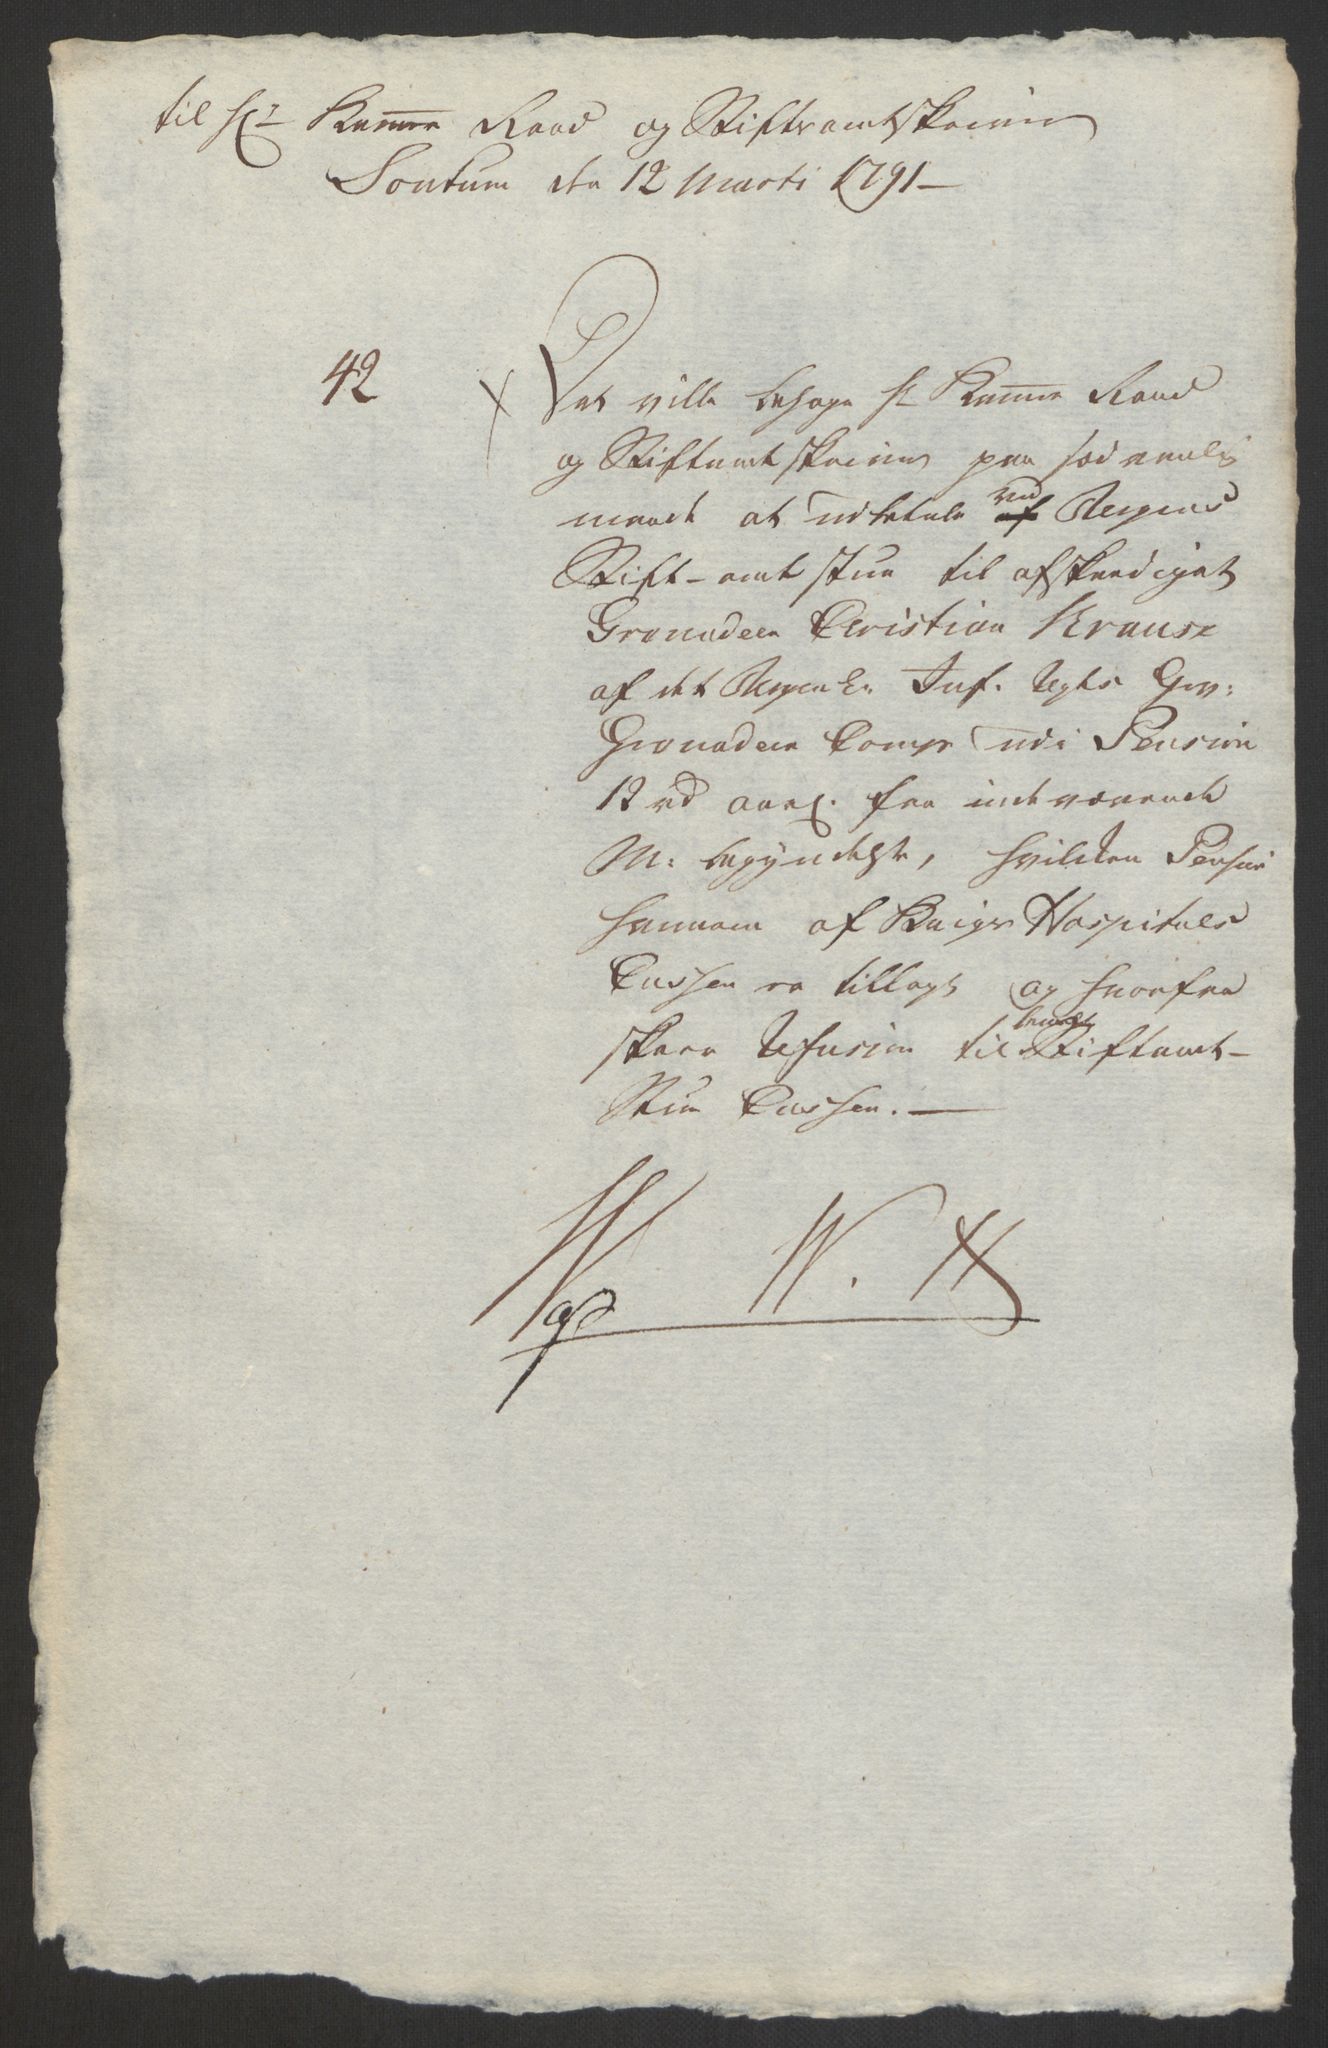 til Hr Kamer Raad og Stiftsamtskriver
Sontum den 12 Marti 1791 —
42
Det ville behage Hr Kamer Raad
og Stiftamtskriver paa sædvanlig
maade at udbetale ved af Bergens
Stift-amtstue til afskediget
Granadeer Christian Krause
af det Bergenhu. Inf. Regts Gev:
Granadeer Comp udi Pension
12 rd aarl. fra indeværende
M: begyndelse, hvilken Pension
hannem af Krigs Hospitals
Cassen er tillagt og hvorfra
skeer Refusion til bemeldte Stiftamt-
Stue Cassen. —
W. H